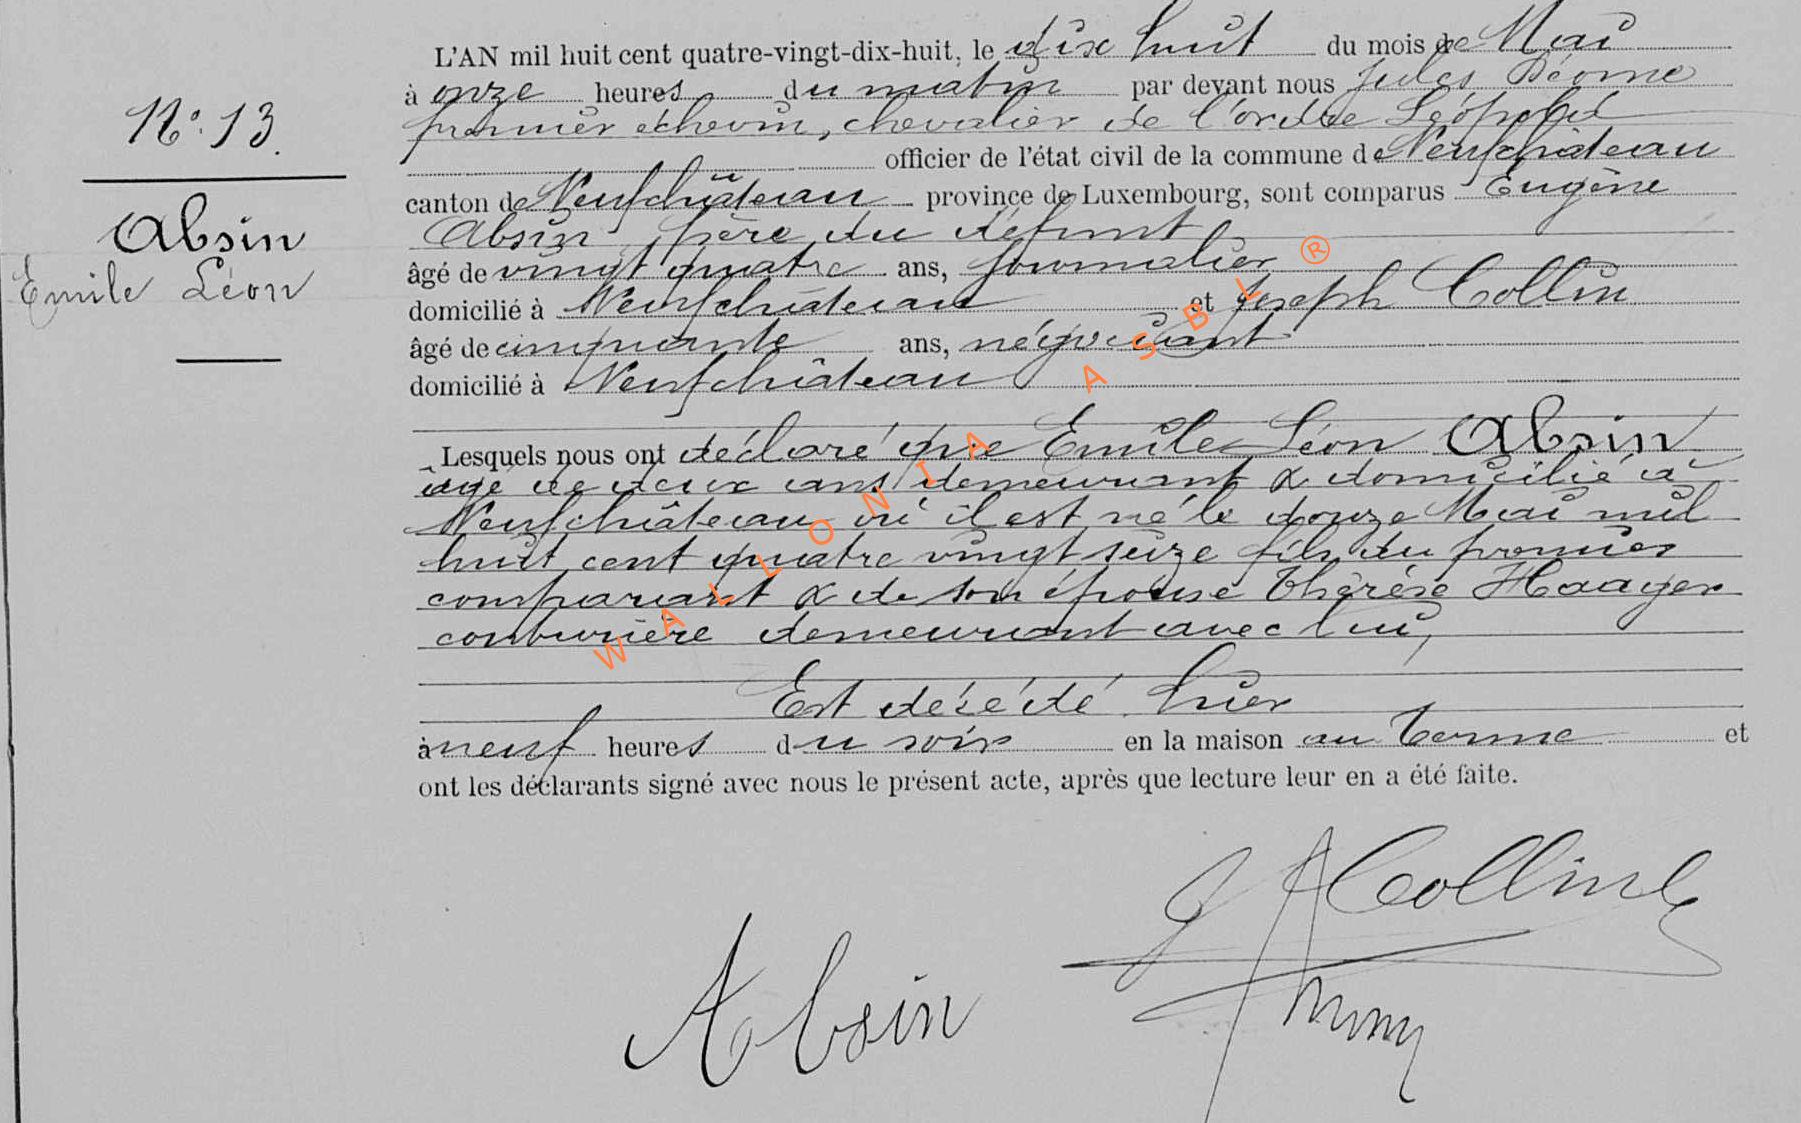 N°. 13.
Absin
Emile Léon
L'AN mil huit cent quatre-vingt-dix-huit, le dix huit du mois de Mai
à onze heures du matin par devant nous Jules
premier échevin, chevalier de l'ordre Léopold
officier de l'état civil de la commune de Neufchâteau
canton de Neufchâteau province de Luxembourg, sont comparus Eugène
Absin, père du défunt
âgé de vingt quatre ans, journalier
domicilié à Neufchâteau et Joseph Collin
âgé de cinquante ans, négociant
domicilié à Neufchâteau
Lesquels nous ont déclaré que Emile Léon Absin
âgé de deux ans demeurant & domicilié à
Neufchâteau où il est né le douze Mai mil
huit cent quatre vingt seize fils du premier
comparant & de son épouse Thérèse Haager
couturière demeurant avec lui,
Est décédé hier
à neuf heures du soir en la maison au Terme et
ont les déclarants signé avec nous le présent acte, après que lecture leur en a été faite.
J Collin
Absin
WALLONIA ASBL ®